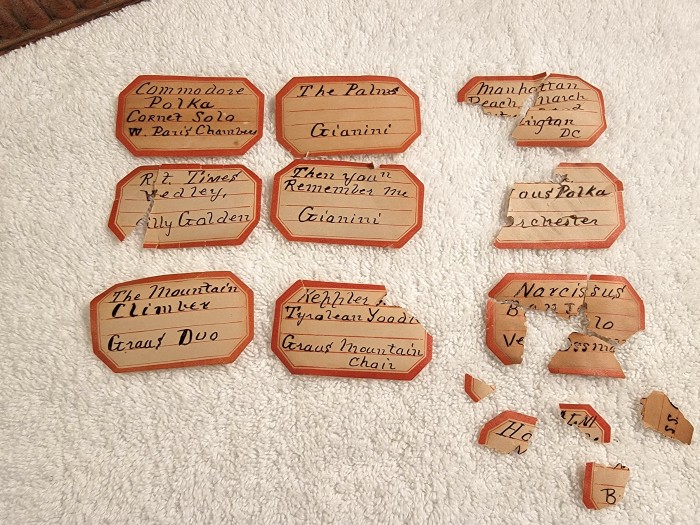 Commodore
Polka
Cornet Solo
W. Paris Chambers
The Palms
Gianini
Manhattan
Beach March
ington
DC
R.t. Times
Medley,
illy Golden
Then you'll
Remember me
Gianini
aus Polka
rchester
The Mountain
Climber
Graus Duo
Keppler
Tyrolean Yood
Graus Mountain
Choir
Narcissus
Banj lo
Ve Ossm
Ho
B